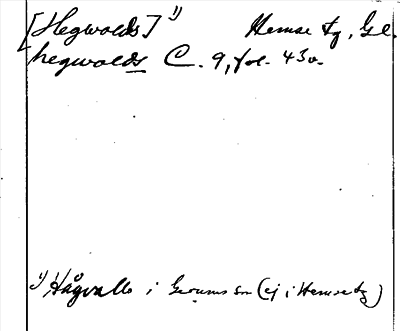 [Hegwolds] 1) Hemse tg, Gl.
hegwolds C. 9, fol. 43v.
1) Hägvalls i Gerums sn (ej i Hemse tg)